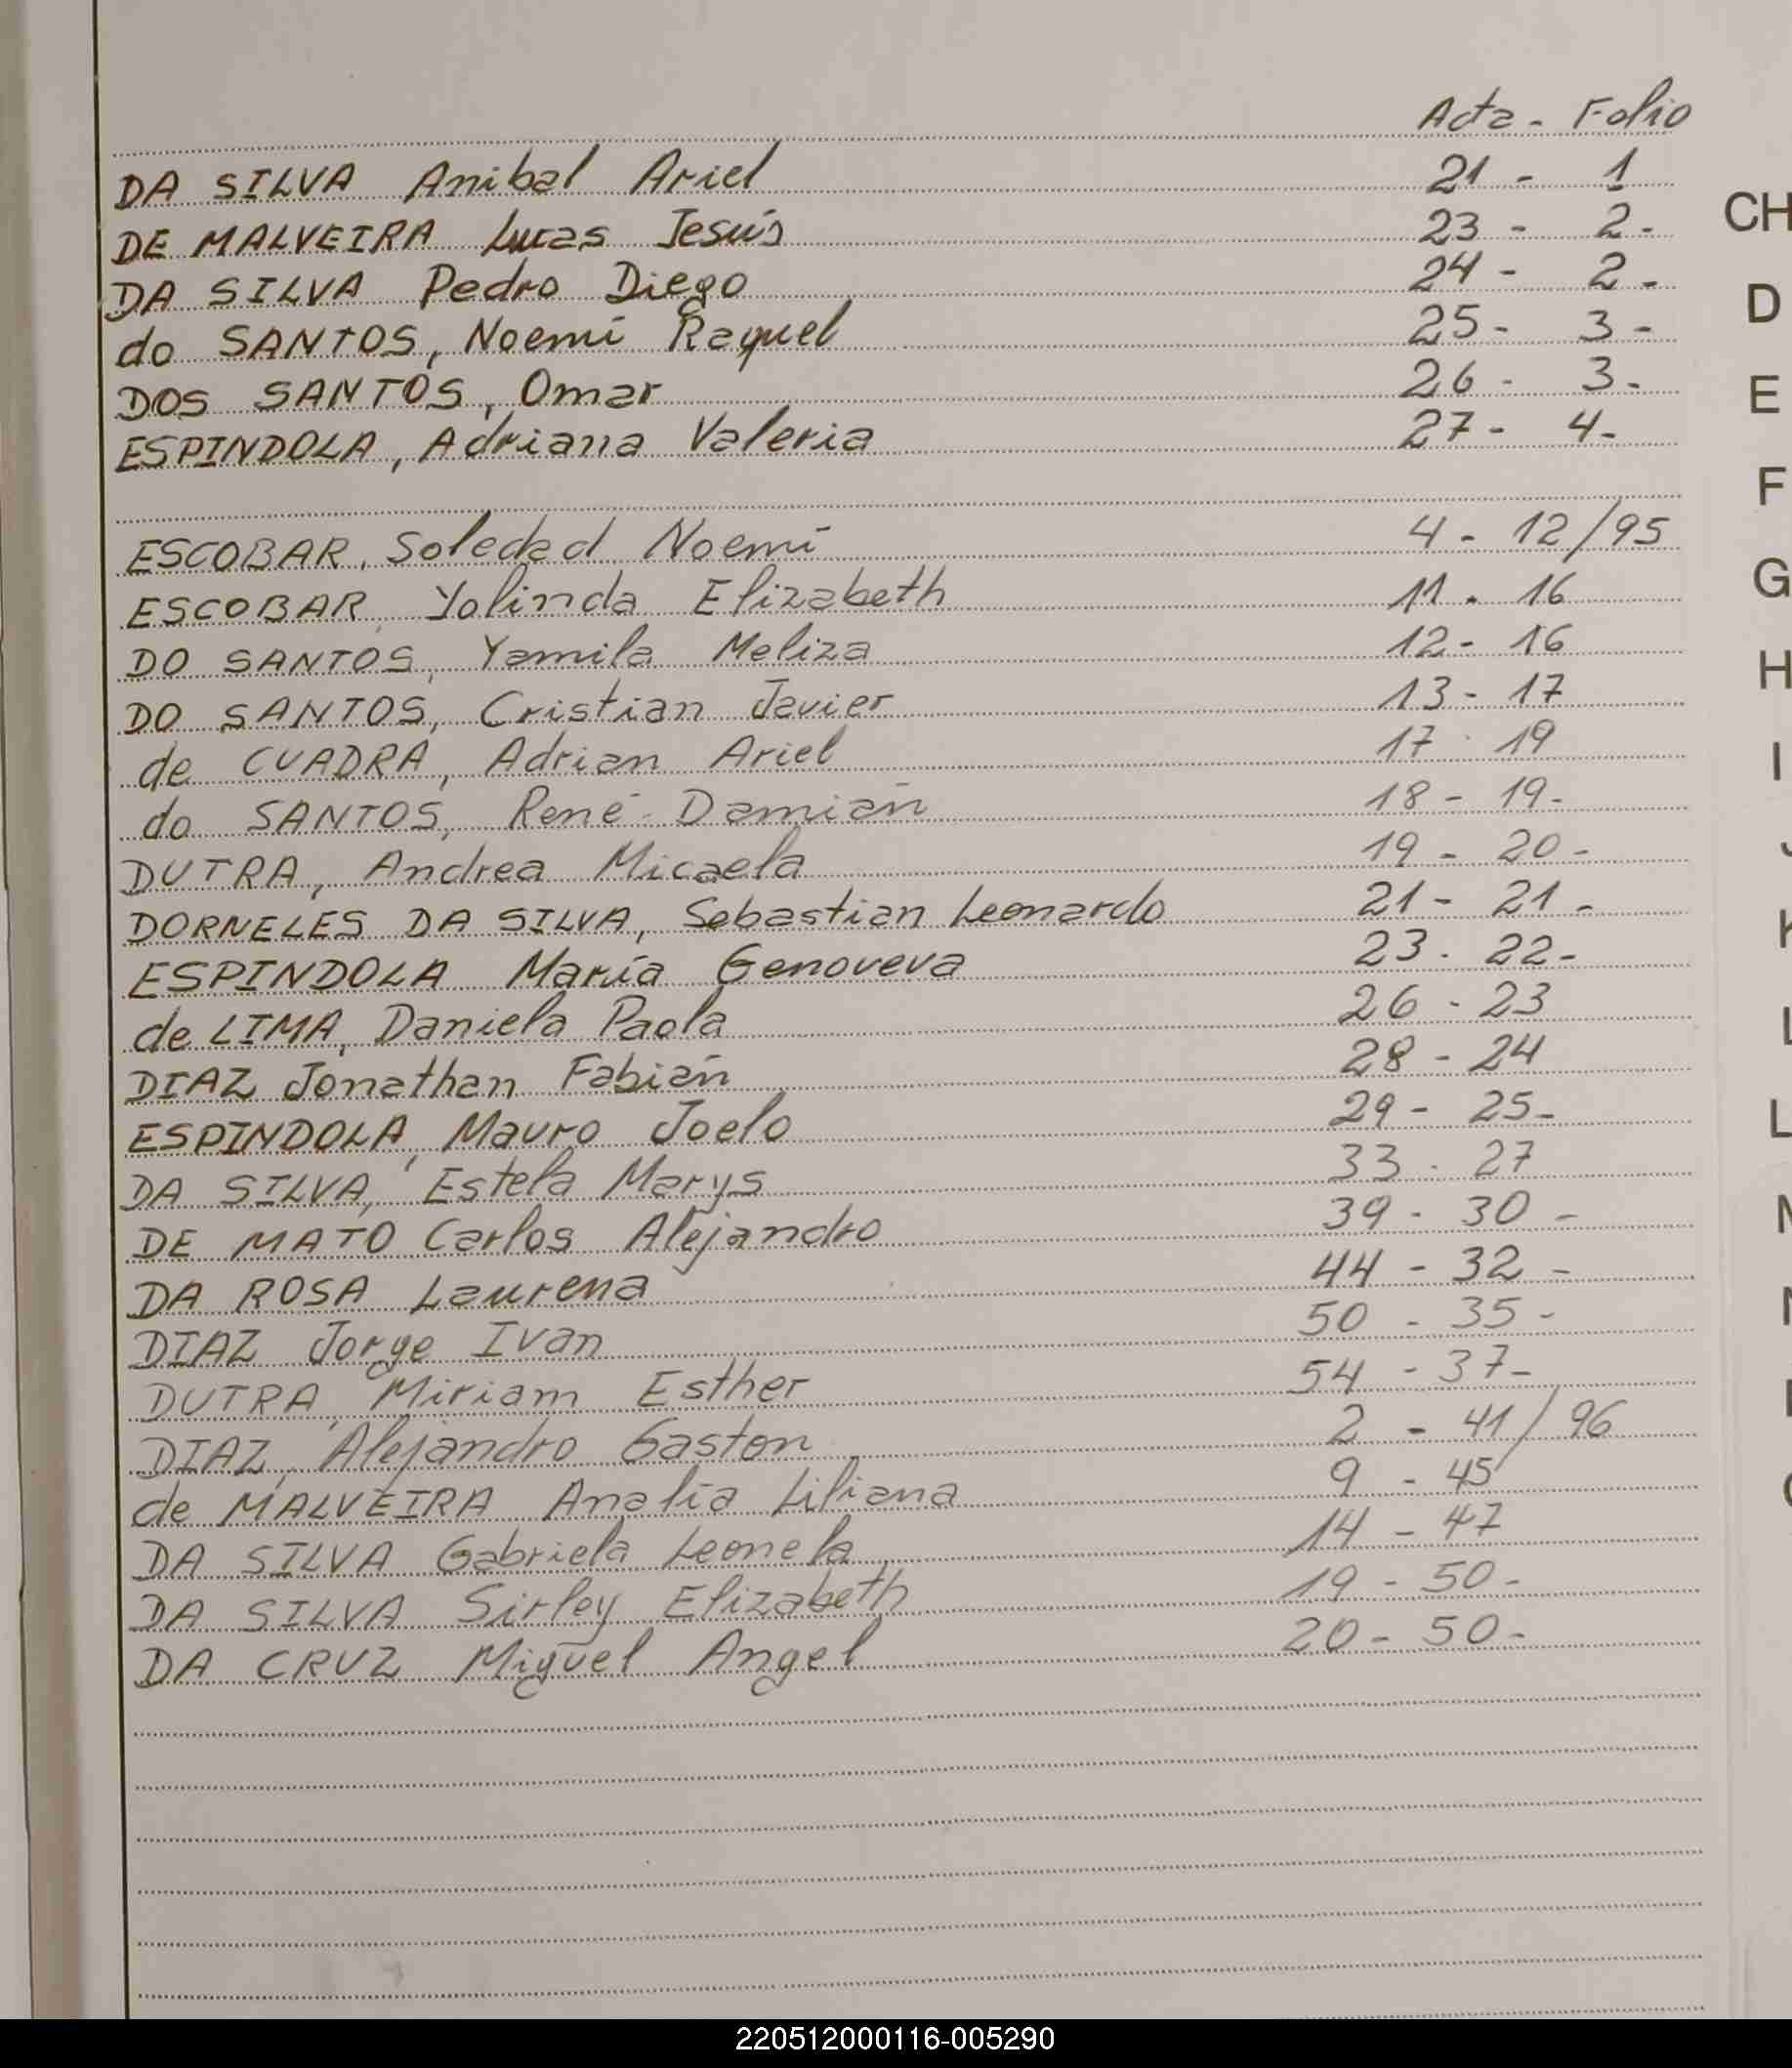 Acta - Folio
DA SILVA Anibal Ariel 21 - 1
DE MALVEIRA Lucas Jesús 23 - 2 -
DA SILVA Pedro Diego 24 - 2 -
do SANTOS, Noemí Raquel 25 - 3 -
DOS SANTOS, Omar 26 - 3 -
ESPINDOLA, Adriana Valeria 27 - 4 -
ESCOBAR, Soledad Noemí 4 - 12/95
ESCOBAR, Yolinda Elizabeth 11 - 16
DO SANTOS, Yamila Meliza 12 - 16
DO SANTOS, Cristian Javier 13 - 17
de CUADRA, Adrian Ariel 17 - 19
do SANTOS, René Damián 18 - 19 -
DUTRA, Andrea Micaela 19 - 20 -
DORNELES DA SILVA, Sebastian Leonardo 21 - 21 -
ESPINDOLA María Genoveva 23 - 22 -
de LIMA, Daniela Paola 26 - 23
DIAZ Jonathan Fabián 28 - 24
ESPINDOLA, Mauro Joelo 29 - 25 -
DA SILVA, Estela Marys 33 - 27
DE MATO Carlos Alejandro 39 - 30 -
DA ROSA Laurena 44 - 32 -
DIAZ Jorge Ivan 50 - 35 -
DUTRA, Miriam Esther 54 - 37 -
DIAZ, Alejandro Gaston 2 - 41/96
de MALVEIRA Analía Liliana 9 - 45
DA SILVA Gabriela Leonela 14 - 47
DA SILVA Sirley Elizabeth 19 - 50 -
DA CRUZ Miguel Angel 20 - 50 -
CH
D
E
F
G
H
I
220512000116-005290